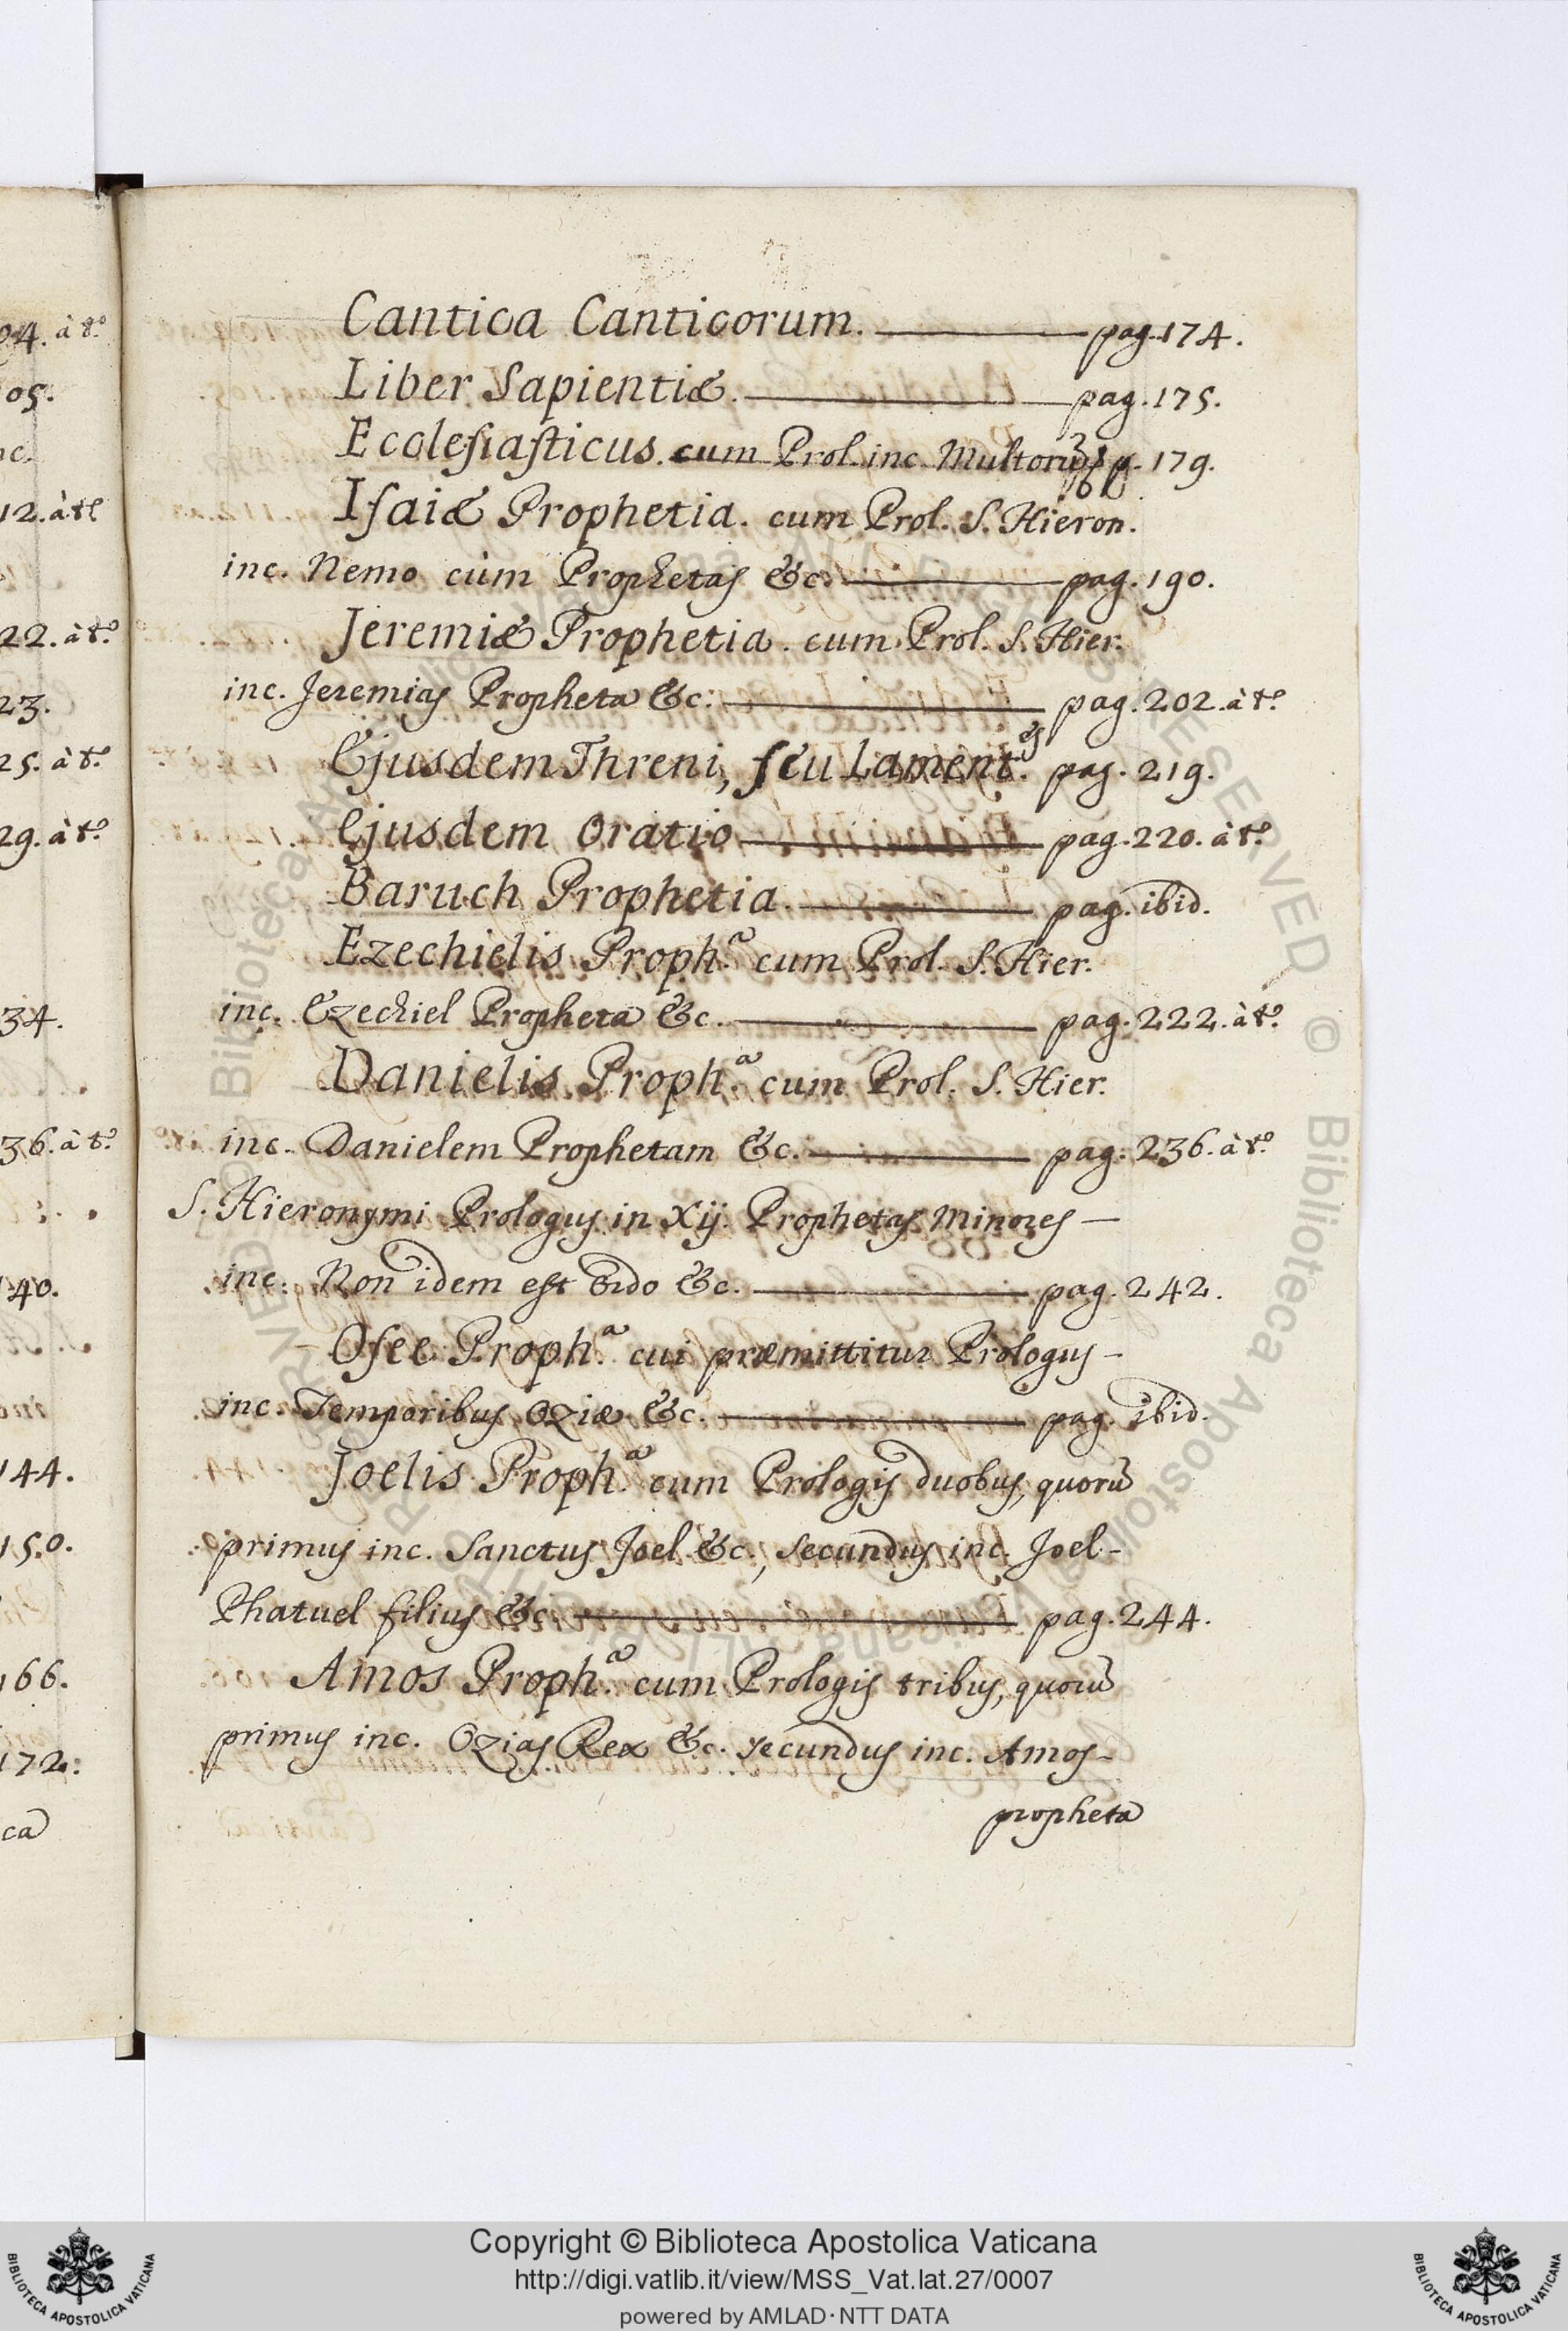 Cantica Canticorum. pag. 174.
Liber Sapientiæ. pag. 175.
Ecclesiasticus. cum Prol. inc. Multorũ p. 179.
Isaiæ Prophetia. cum Prol. S. Hieron.
inc. Nemo cùm Prophetas &c. pag. 190.
Jeremiæ Prophetia. cum Prol. S. Hier.
inc. Jeremias Propheta &c: pag. 202. à tº.
Ejusdem Threni, seu Lament.es pag. 219.
Ejusdem Oratio pag. 220. à tº.
Baruch Prophetia. pag. ibid.
Ezechielis Proph.a cum Prol. S. Hier.
inc. Ezechiel Propheta &c. pag. 222. à tº.
Danielis Proph.a cum Prol. S. Hier.
inc. Danielem Prophetam &c. pag. 236. à tº.
S. Hieronymi Prologus in Xij. Prophetas Minores —
inc. Non idem est Ordo &c. pag. 242.
Osee Proph.a cui præmittitur Prologus -
inc. Temporibus Oziæ &c. pag. ibid.
Joelis Proph.a cum Prologis duobus, quorũ
primus inc. Sanctus Joel &c., secundus inc. Joel -
Phatuel filius &c. pag. 244.
Amos Proph.a cum Prologis tribus, quorũ
primus inc. Ozias Rex &c. secundus inc. Amos -
propheta
04. à tº.
05.
12. à tº
22. à tº.
23.
25. à tº.
29. à tº.
34.
36. à tº.
140.
144.
150.
166.
172:
ca
Copyright © Biblioteca Apostolica Vaticana
http://digi.vatlib.it/view/MSS_Vat.lat.27/0007
powered by AMLAD·NTT DATA
BIBLIOTECA APOSTOLICA VATICANA
BIBLIOTECA APOSTOLICA VATICANA